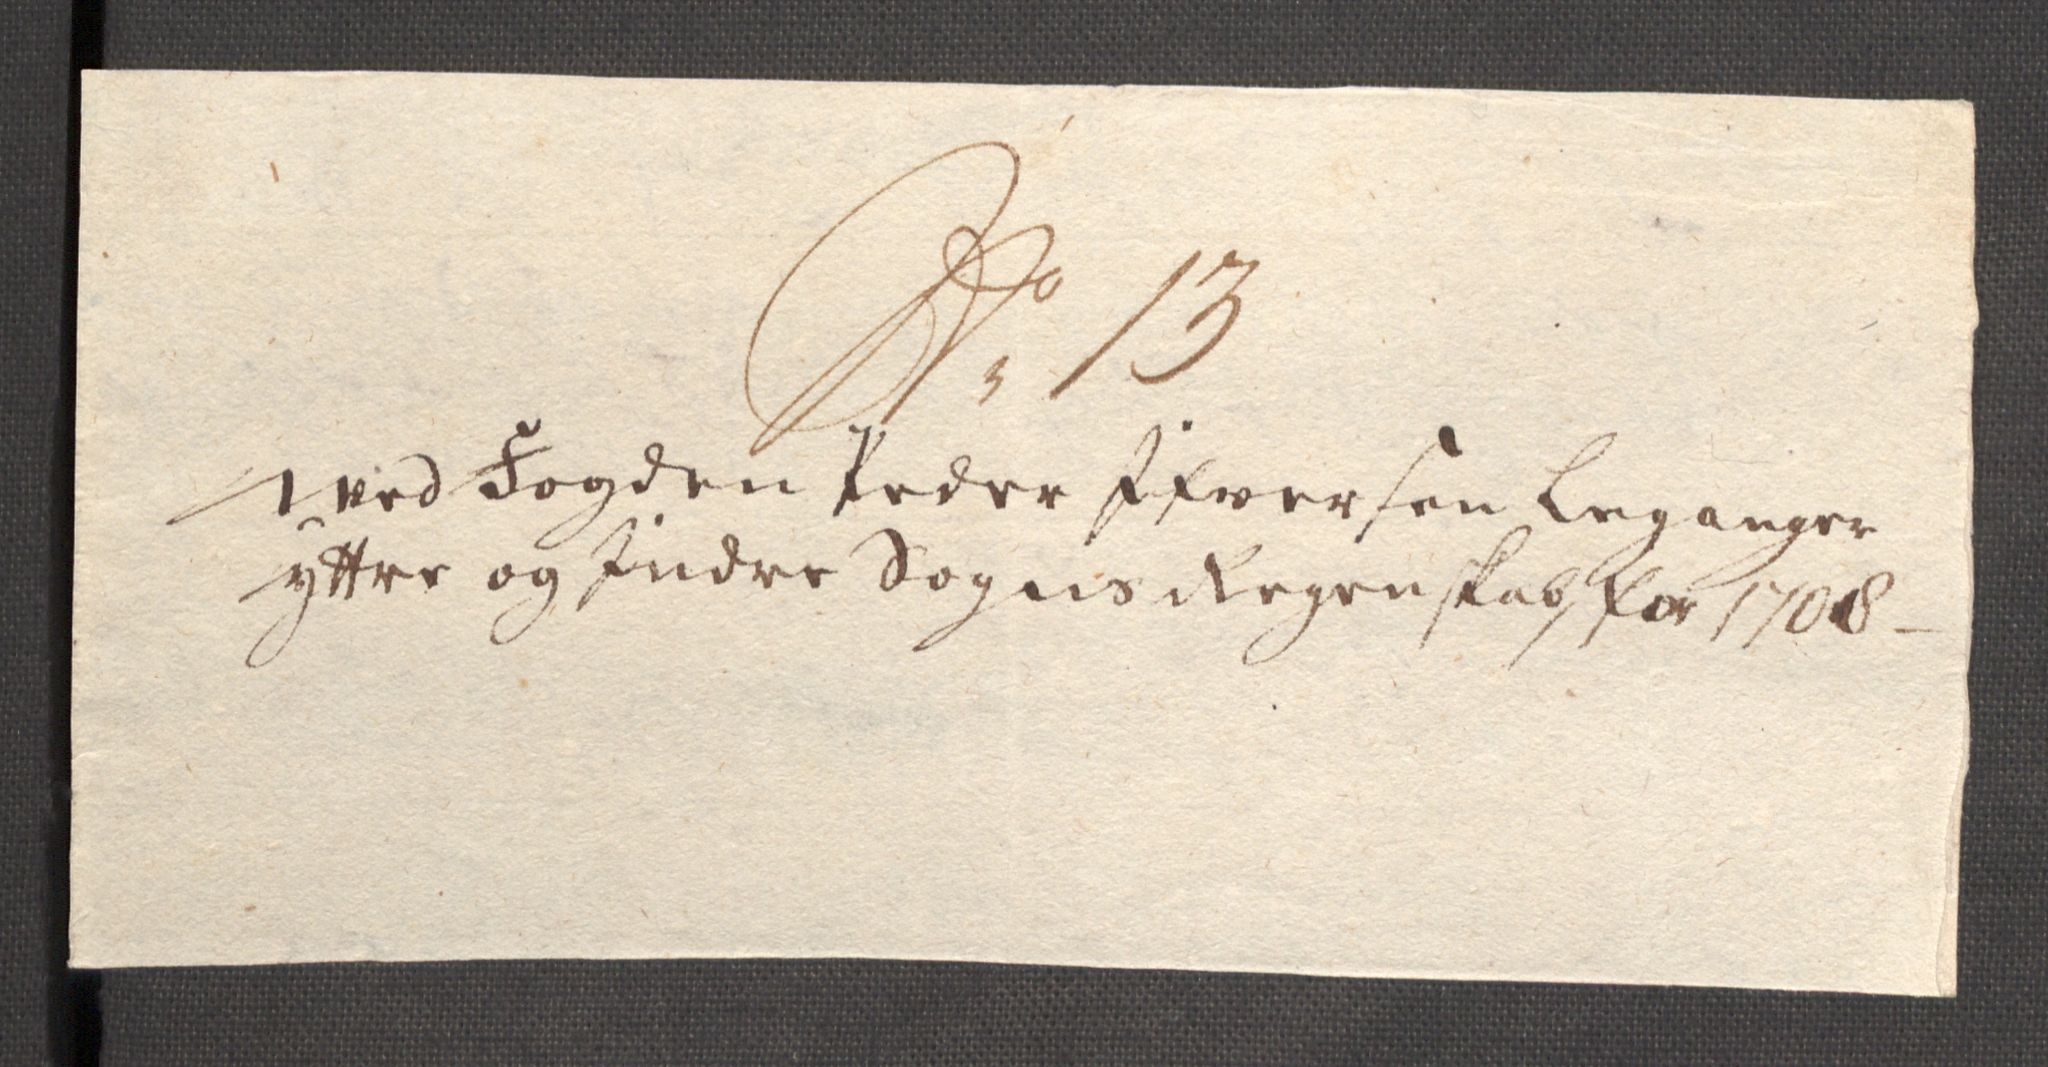 No: 13
Ved Fogden Peder Ifversen Leganger
Yttre og Indre Sogns Regenskab for 1708